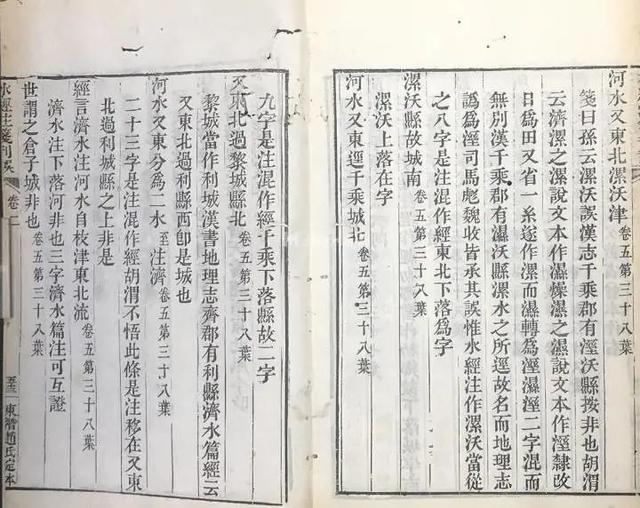 河水又東北漯沃津
箋曰孫云漯沃誤漢志千乘郡有溼沃縣按非也胡渭
云濟漯之漯說文本作濕燥濕之濕說文本作溼隸改
日爲田又省一糸遂作漯而濕轉爲溼濕溼二字混而
無別漢千乘郡有濕沃縣漯水之所逕故名而地理志
譌爲溼司馬彪魏收皆承其誤惟水經注作漯沃當從
之八字是注混作經東北下落爲字
漯沃縣故城南 卷五第三十八葉
漯沃上落在字
河水又東逕千乘城北 卷五第三十八葉
九字是注混作經千乘下落縣故二字
又東北過黎城縣北 卷五第三十八葉
黎城當作利城漢書地理志齊郡有利縣濟水篇經云
又東北過利縣西卽是城也
河水又東分爲二水 至注濟 卷五第三十八葉
二十三字是注混作經胡渭不悟此條是注移在又東
北過利城縣之上非是
經言濟水注河水自枝津東北流 卷五第三十八葉
濟水注下落河非也三字濟水篇注可互證
世謂之倉子城非也 卷五第三十八葉
水經注箋刊誤 卷二 東潛趙氏定本